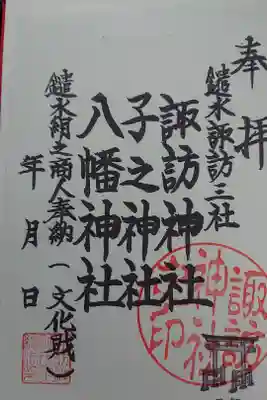 奉拝
鑓水諏訪三社
諏訪神社
子之神社
八幡神社
鑓水絹之商人奉納(文化財)
年月日
諏訪神社